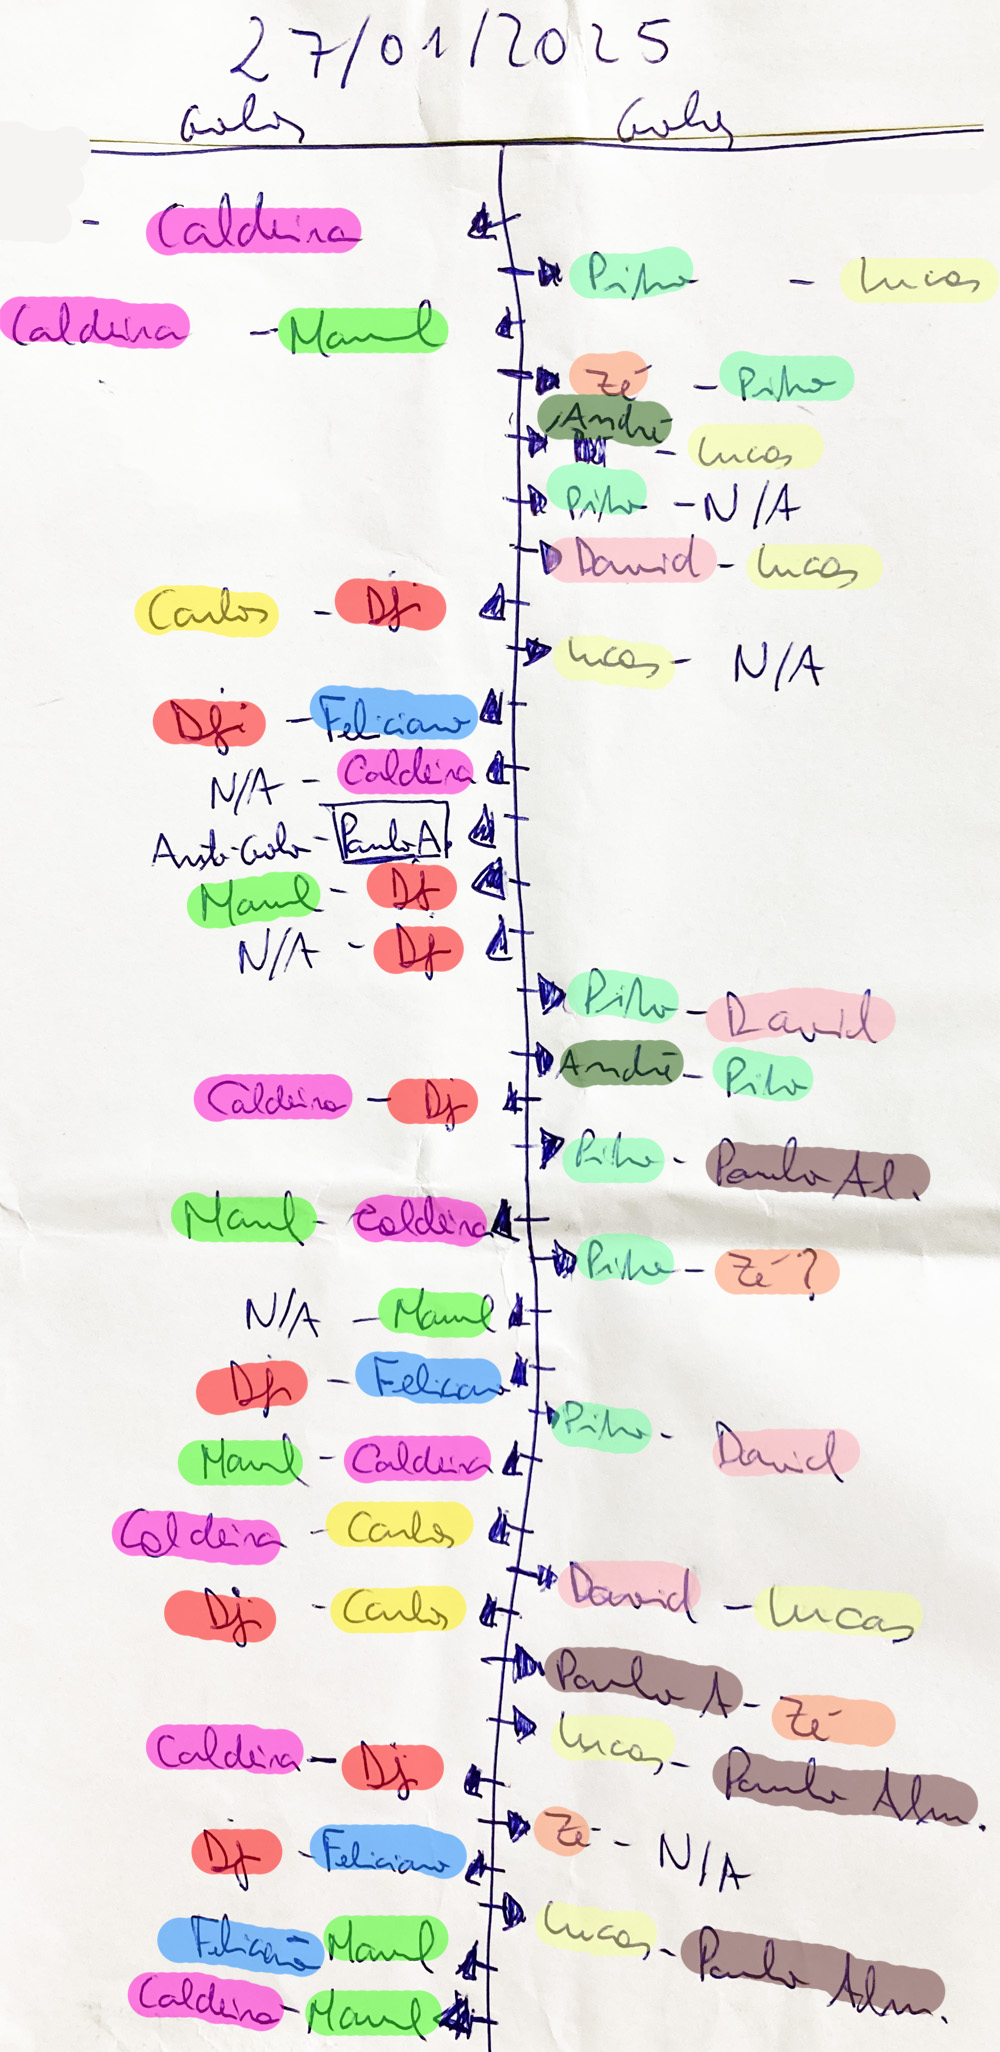 27/01/2025
Golos Golos
- Caldeira
Pinho - Lucas
Caldeira - Manel
Zé - Pinho
André - Lucas
Pinho - N/A
David - Lucas
Carlos - Dji
Lucas - N/A
Dji - Feliciano
N/A - Caldeira
Auto-Golo - Paulo A.
Manel - Dj
N/A - Dj
Pinho - David
André - Pinho
Caldeira - Dj
Pinho - Paulo Al.
Manel - Caldeira
Pinho - Zé?
N/A - Manel
Dji - Feliciano
Pinho - David
Manel - Caldeira
Caldeira - Carlos
David - Lucas
Dj - Carlos
Paulo A - Zé
Lucas - Paulo Alm.
Caldeira - Dj
Zé - N/A
Dj - Feliciano
Lucas - Paulo Alm.
Feliciano Manel
Caldeira - Manel